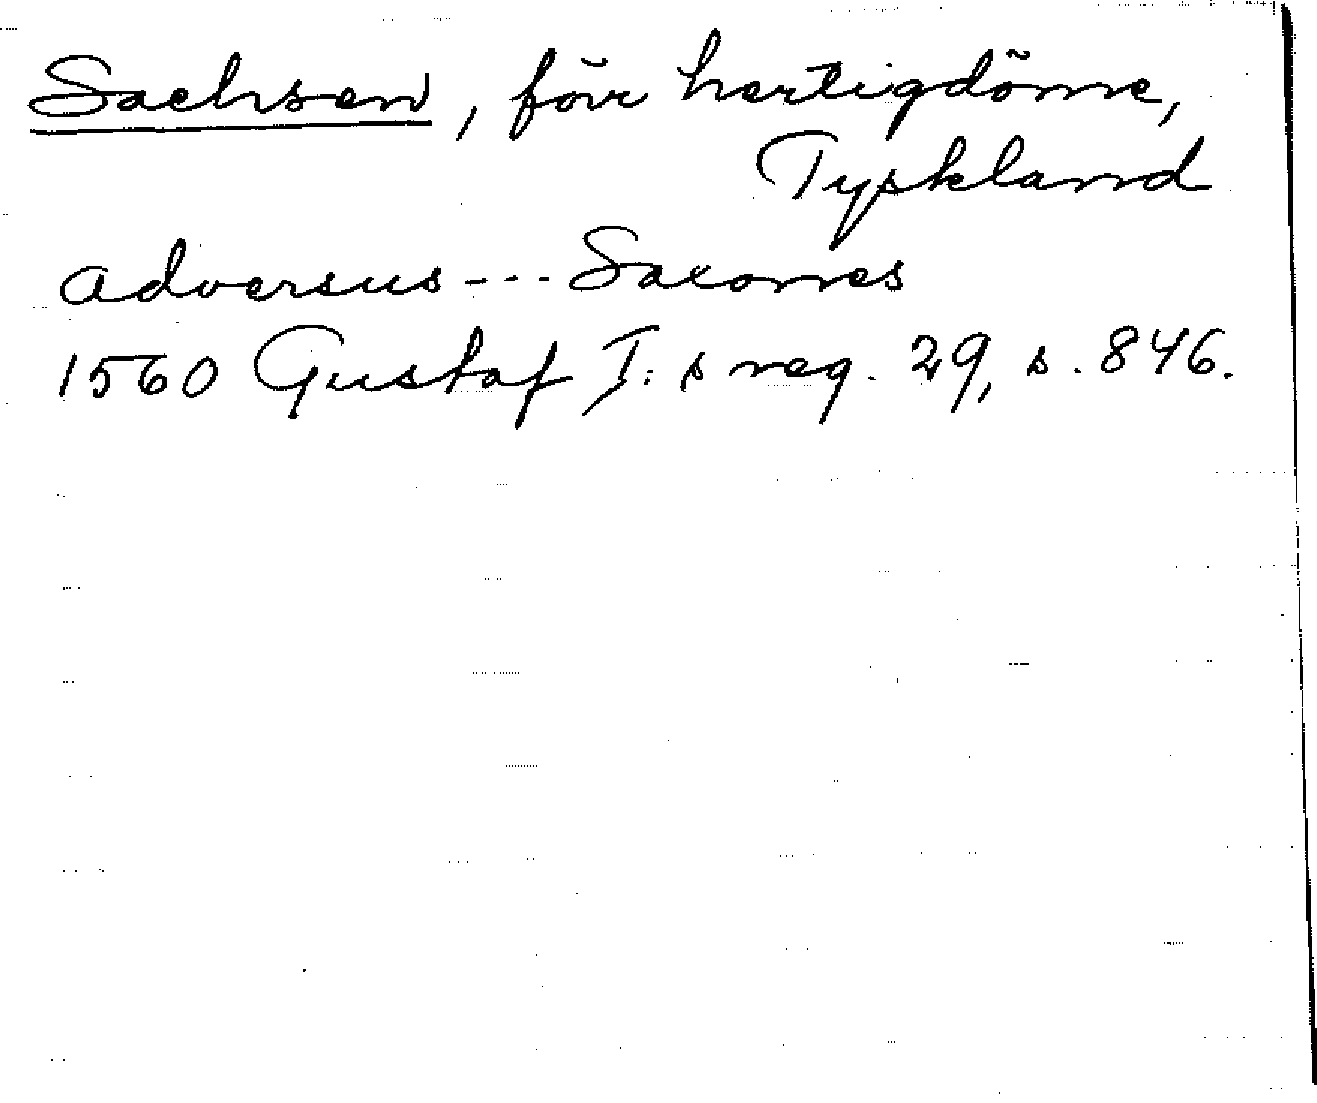 Sachsen, förr hertigdöme,
Tyskland
adversus --- Saxones
1560 Gustaf I:s reg. 29, s. 846.